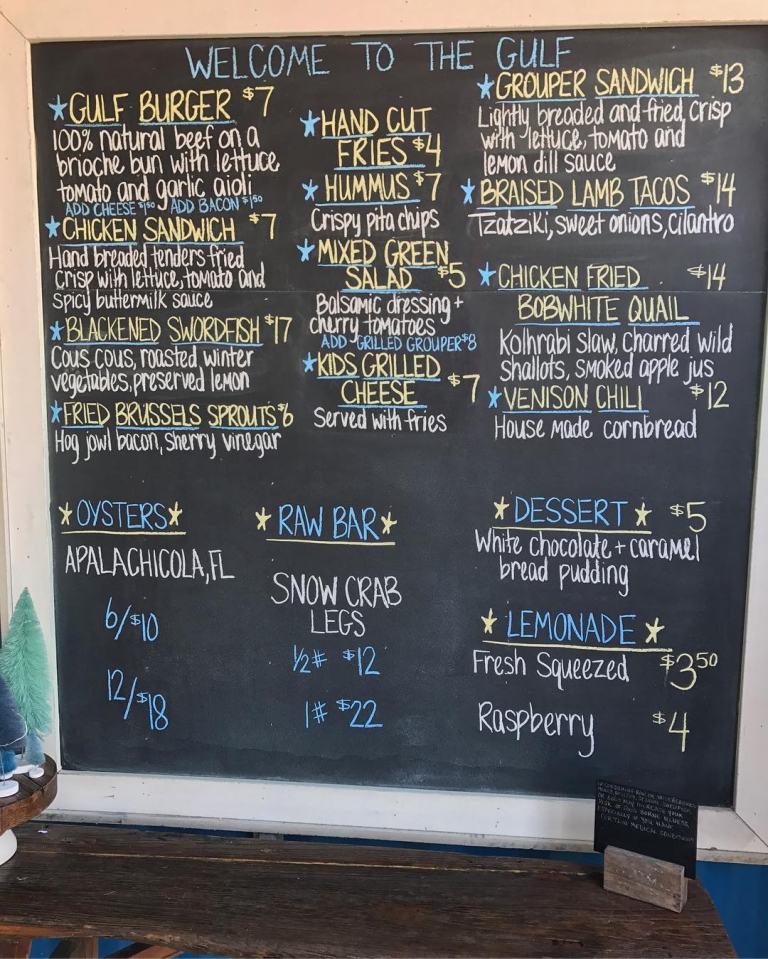 WELCOME TO THE GULF
★GULF BURGER $7
100% natural beef on a
brioche bun with lettuce,
tomato and garlic aioli
ADD CHEESE $1.50 ADD BACON $1.50
★CHICKEN SANDWICH $7
Hand breaded tenders fried
crisp with lettuce, tomato and
spicy buttermilk sauce
★BLACKENED SWORDFISH $17
Cous cous, roasted winter
vegetables, preserved lemon
★FRIED BRUSSELS SPROUTS $6
Hog jowl bacon, sherry vinegar
★HAND CUT
FRIES $4
★HUMMUS $7
Crispy pita chips
★MIXED GREEN
SALAD $5
Balsamic dressing +
cherry tomatoes
ADD GRILLED GROUPER $8
★KIDS GRILLED
CHEESE $7
Served with fries
★GROUPER SANDWICH $13
Lightly breaded and fried crisp
with lettuce, tomato and
lemon dill sauce
★BRAISED LAMB TACOS $14
Tzatziki, sweet onions, cilantro
★CHICKEN FRIED $14
BOBWHITE QUAIL
Kolhrabi slaw, charred wild
shallots, smoked apple jus
★VENISON CHILI $12
House made cornbread
★OYSTERS★
APALACHICOLA, FL
6/$10
12/$18
★RAW BAR★
SNOW CRAB
LEGS
½# $12
1# $22
★DESSERT★ $5
White chocolate + caramel
bread pudding
★LEMONADE★
Fresh Squeezed $3.50
Raspberry $4